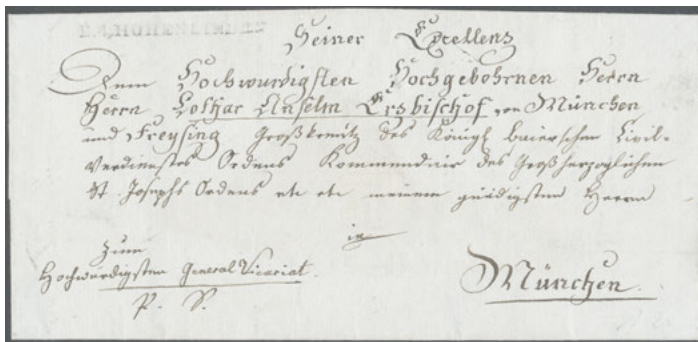 E.R. HOHENLINDEN
Seiner Excellenz
Dem Hochwurdigsten Hochgebohrnen Herrn
Herrn Lothar Anselm Erzbischof von München
und Freysing Großkreutz des Königl baierschen Civil-
Verdienstes Ordens Kommendeur des Großherzoglichen
St. Josephs Ordens etc etc meinem gnädigsten Herrn
in
Zum
Hochwürdigsten General Vicariat.
München.
P. S.